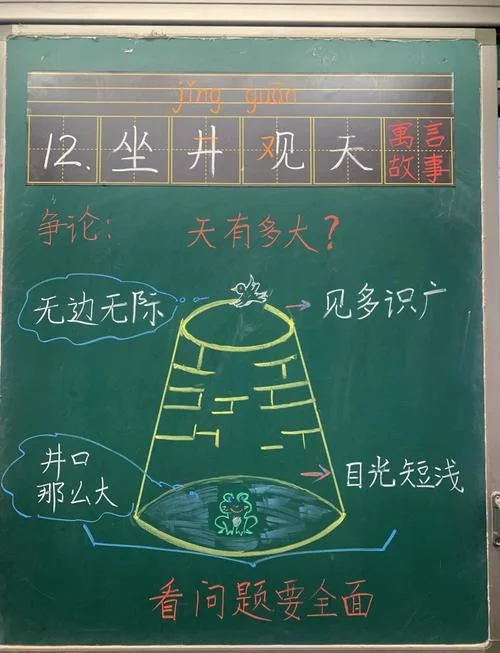 jǐng guān
12. 坐井观天 寓言故事
争论： 天有多大？
无边无际
见多识广
井口
那么大
目光短浅
看问题要全面